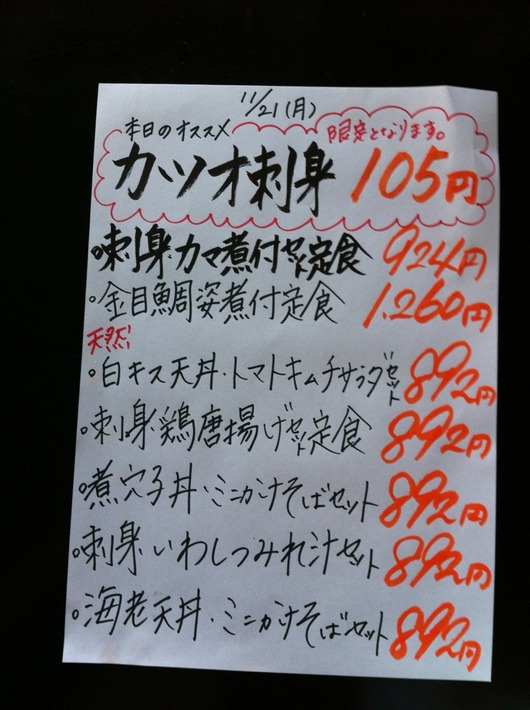 11/21(月)
本日のオススメ
限定となります。
カツオ刺身 105円
○刺身カマ煮付セット定食 924円
○金目鯛姿煮付定食 1,260円
天然
○白キス天丼・トマトキムチサラダセット 892円
○刺身鶏唐揚げセット定食 892円
○煮穴子丼・ミニかけそばセット 892円
○刺身いわしつみれ汁セット 892円
○海老天丼・ミニかけそばセット 892円